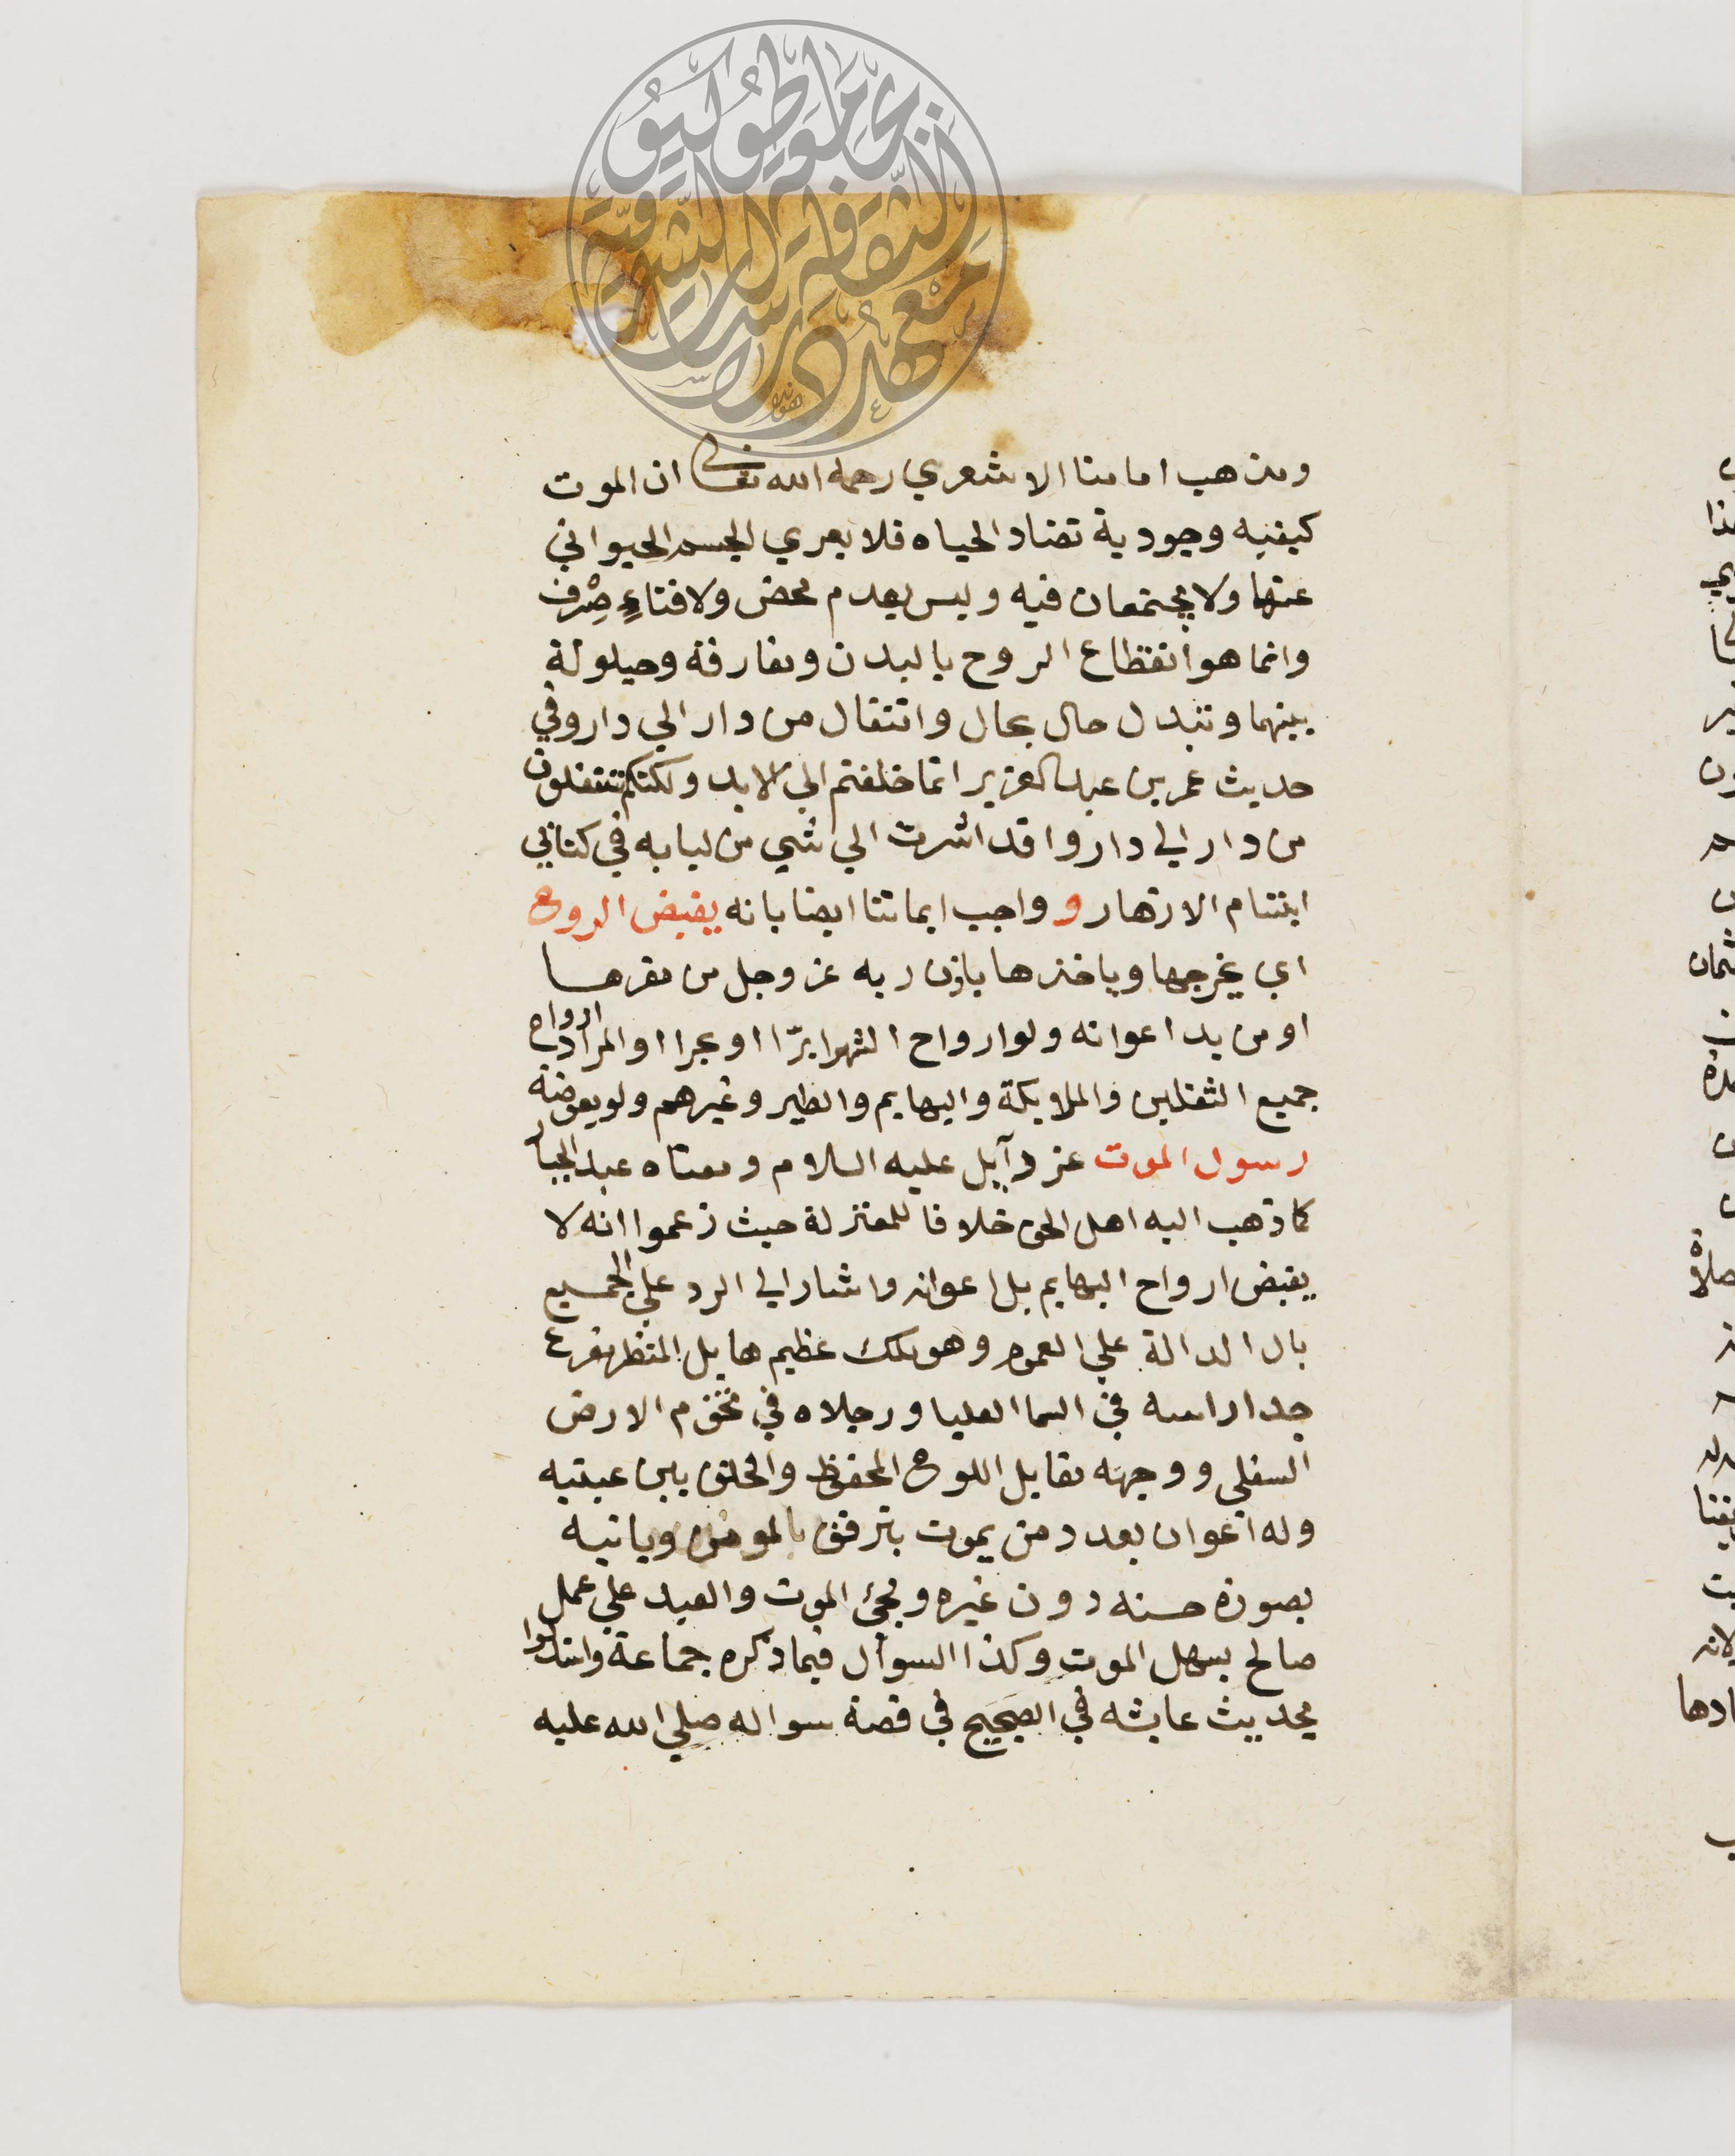 ومذهب امامنا الاشعري رحمه الله تعالى ان الموت
كيفيه وجودية تضاد الحياه فلا يعري الجسم الحيواني
عنها ولا يجتمعان فيه وليس بعدم محض ولا فناءٍ صِرف
وانما هو انقطاع الروح بالبدن ومفارقة وحيلولة
بينهما وتبدل حال بحال وانتقال من دار الي دار وفي
حديث عمر بن عبد العزيز انما خلقتم الي الابد ولكنكم تنتقلون
من دار الي دار واقد اشرت الي شي من لبابه في كتابي
ابتسام الازهار و واجب ايماننا ايضا بانه يقبض الروح
اي يخرجها وياخذها باذن ربه عز وجل من مقرها
او من يد اعوانه ولو ارواح الشهدا برّا او بحرا او المراد ارواح
جميع الثقلين والملايكة والبهايم والطير وغيرهم ولو بعوضة
رسول الموت عزرآيل عليه السلام ومعناه عبد الجبار
كما ذهب اليه اهل الحق خلافا للمعتزلة حيث زعموا انه لا
يقبض ارواح البهايم بل اعوانه واشار الي الرد علي الجميع
بال الدالة علي العموم وهو ملك عظيم هايل المنظر مفزع
جدا راسه في السما العليا ورجلاه في تخوم الارض
السفلي ووجهه مقابل اللوح المحفوظ والخلق بين عينيه
وله اعوان بعدد من يموت يترفق بالمومن وياتيه
بصورة حسنه دون غيره ومجئ الموت والعبد علي عمل
صالح يسهل الموت وكذا السوال فيما ذكره جماعة واستدلوا
بحديث عايشه في الصحيح في قصة سواله صلي الله عليه